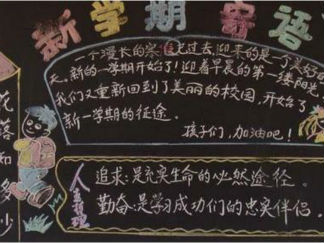 新学期寄语
一个漫长的寒假已过去,迎来的是一个美好的
天。新的一学期开始了!迎着早晨的第一缕阳光,
我们又重新回到了美丽的校园,开始了
新一学期的征途。
孩子们,加油吧!
花落知多少
人生哲理
追求是充实生命的必然途径。
勤奋是学习成功们的忠实伴侣。